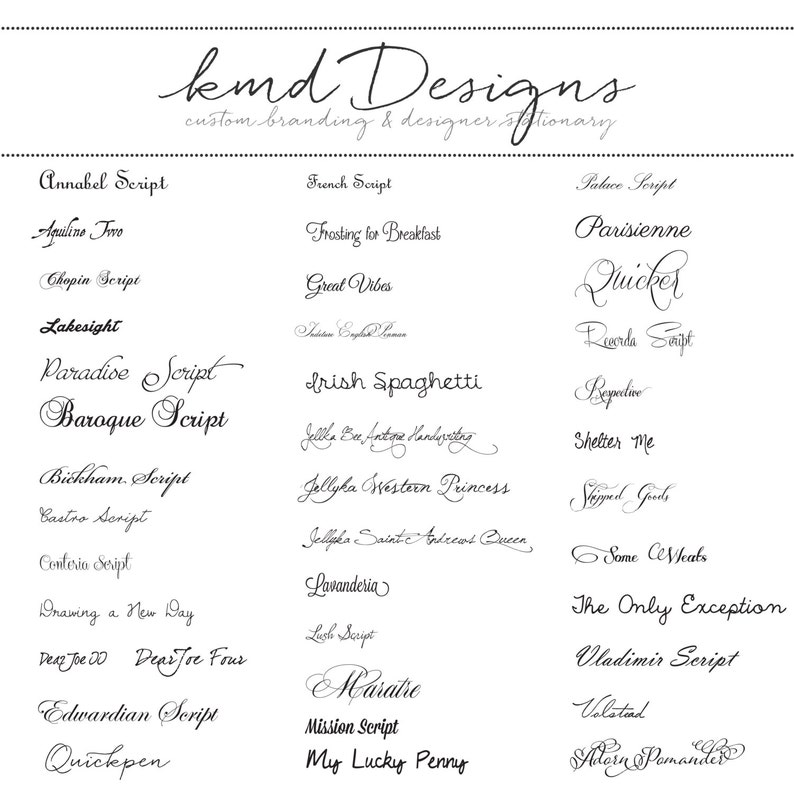 kmd Designs
custom branding & designer stationary
Annabel Script
Aquiline Two
Chopin Script
Lakesight
Paradise Script
Baroque Script
Bickham Script
Castro Script
Conteria Script
Drawing a New Day
DearJoe
DearJoe Four
Edwardian Script
Quickpen
French Script
Frosting for Breakfast
Great Vibes
Indenture English Penman
Irish Spaghetti
Jellka Bee Antique Handwriting
Jellyka Western Princess
Jellyka Saint-Andrew's Queen
Lavanderia
Lush Script
Maratre
Mission Script
My Lucky Penny
Palace Script
Parisienne
Quicker
Recorda Script
Respective
Shelter Me
Shipped Goods
Some Weatz
The Only Exception
Vladimir Script
Volstead
Adorn Pomander